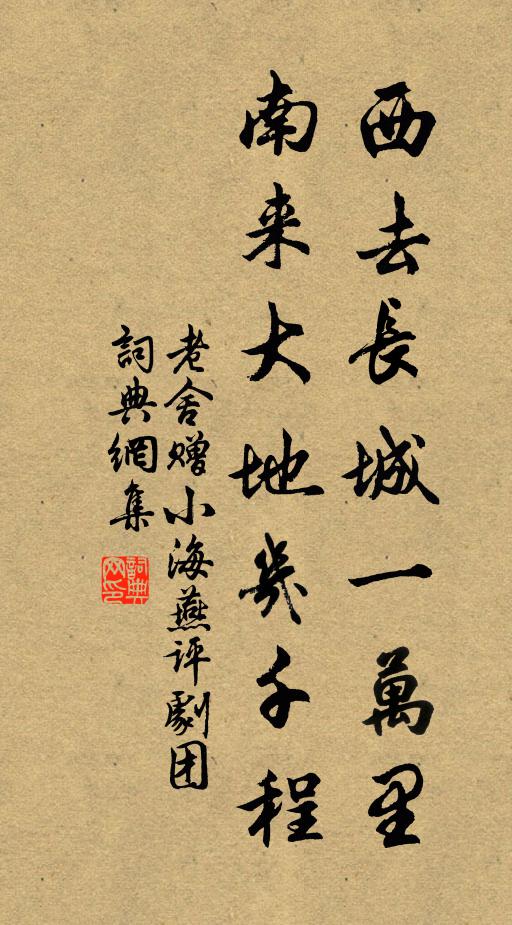 西去長城一萬里
南来大地幾千程
老舍赠小海燕评劇团
詞典網集
詞典網印